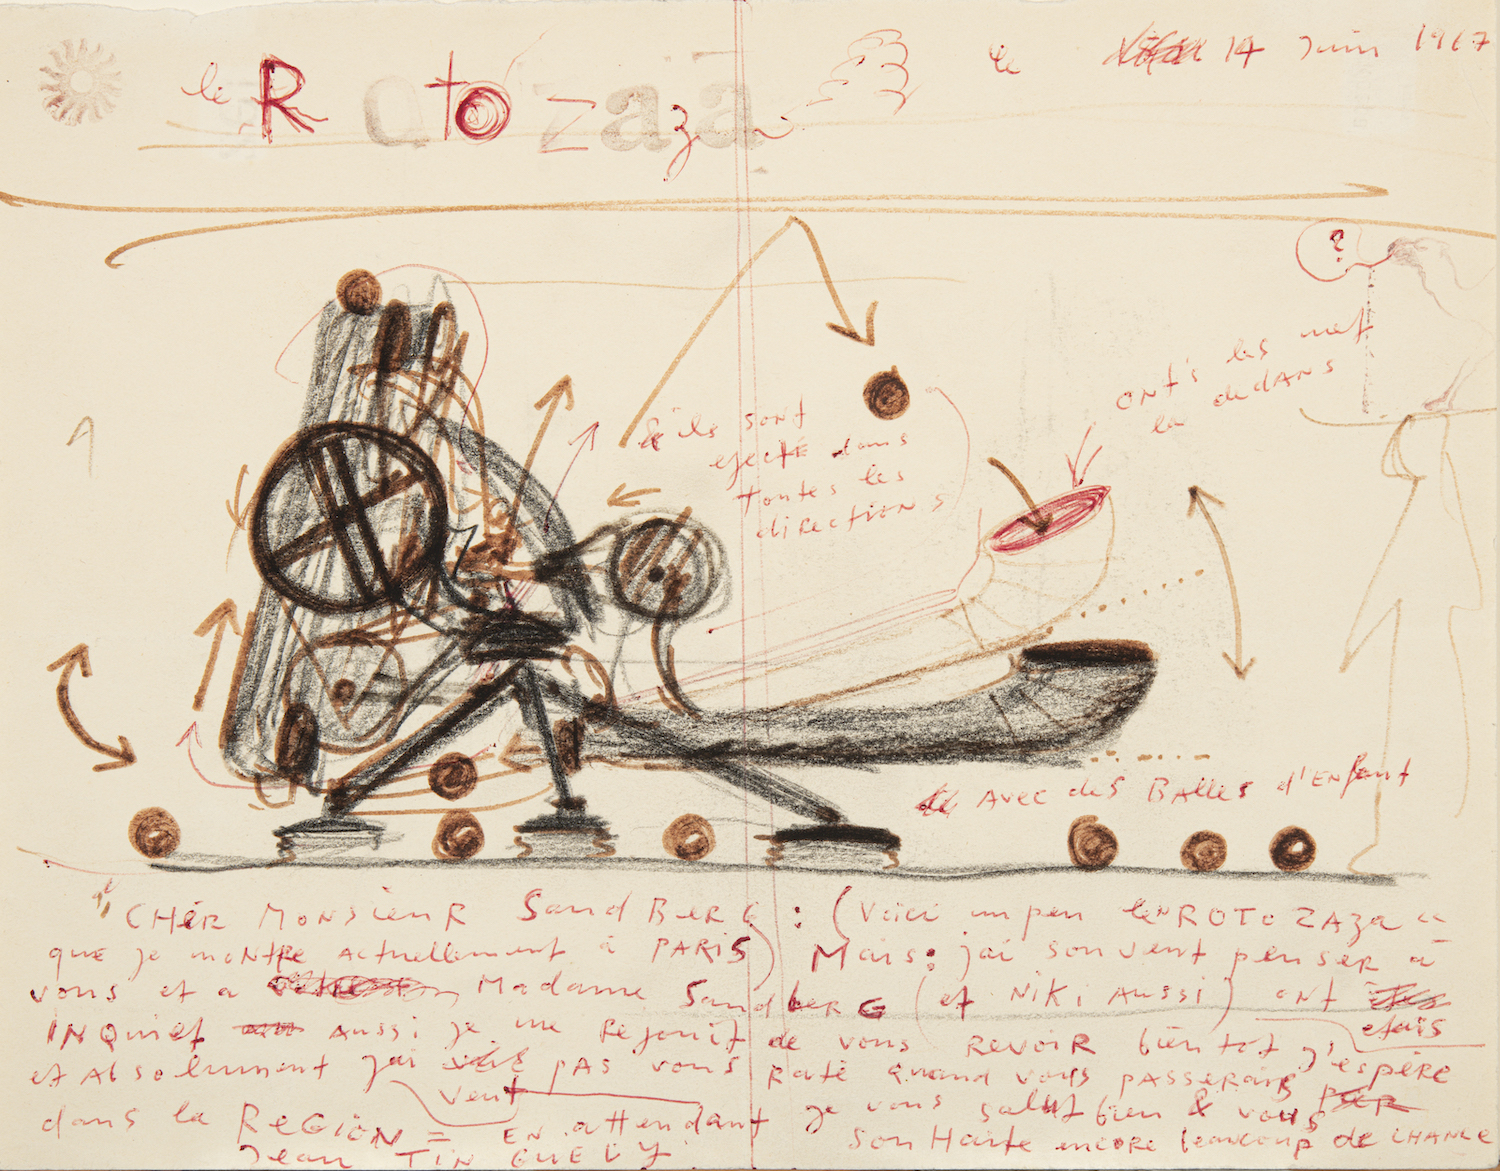 le Rotozaza
le 14 Juin 1967
?
ont's les met
la dedans
& ils sont
ejecté dans
toutes les
directions
Avec des Balles d'Enfant
CHER MonsieuR SandBerG : (Voici un peu le ROTOZAZa
que je montre actuellement à PARIS) Mais: j'ai souvent penser à
vous et a Madame SandberG (et Niki Aussi) ont
INQuiet Aussi je me Rejouit de vous REVOIR bientot j'espère
etais
et Absolument j'ai pAs vous raté quand vous pAsserais
veut
dans la ReGiON = EN attendant je vous salut bien & vous
Jean TiNGUELY souHaite encore beaucoup de CHANCE